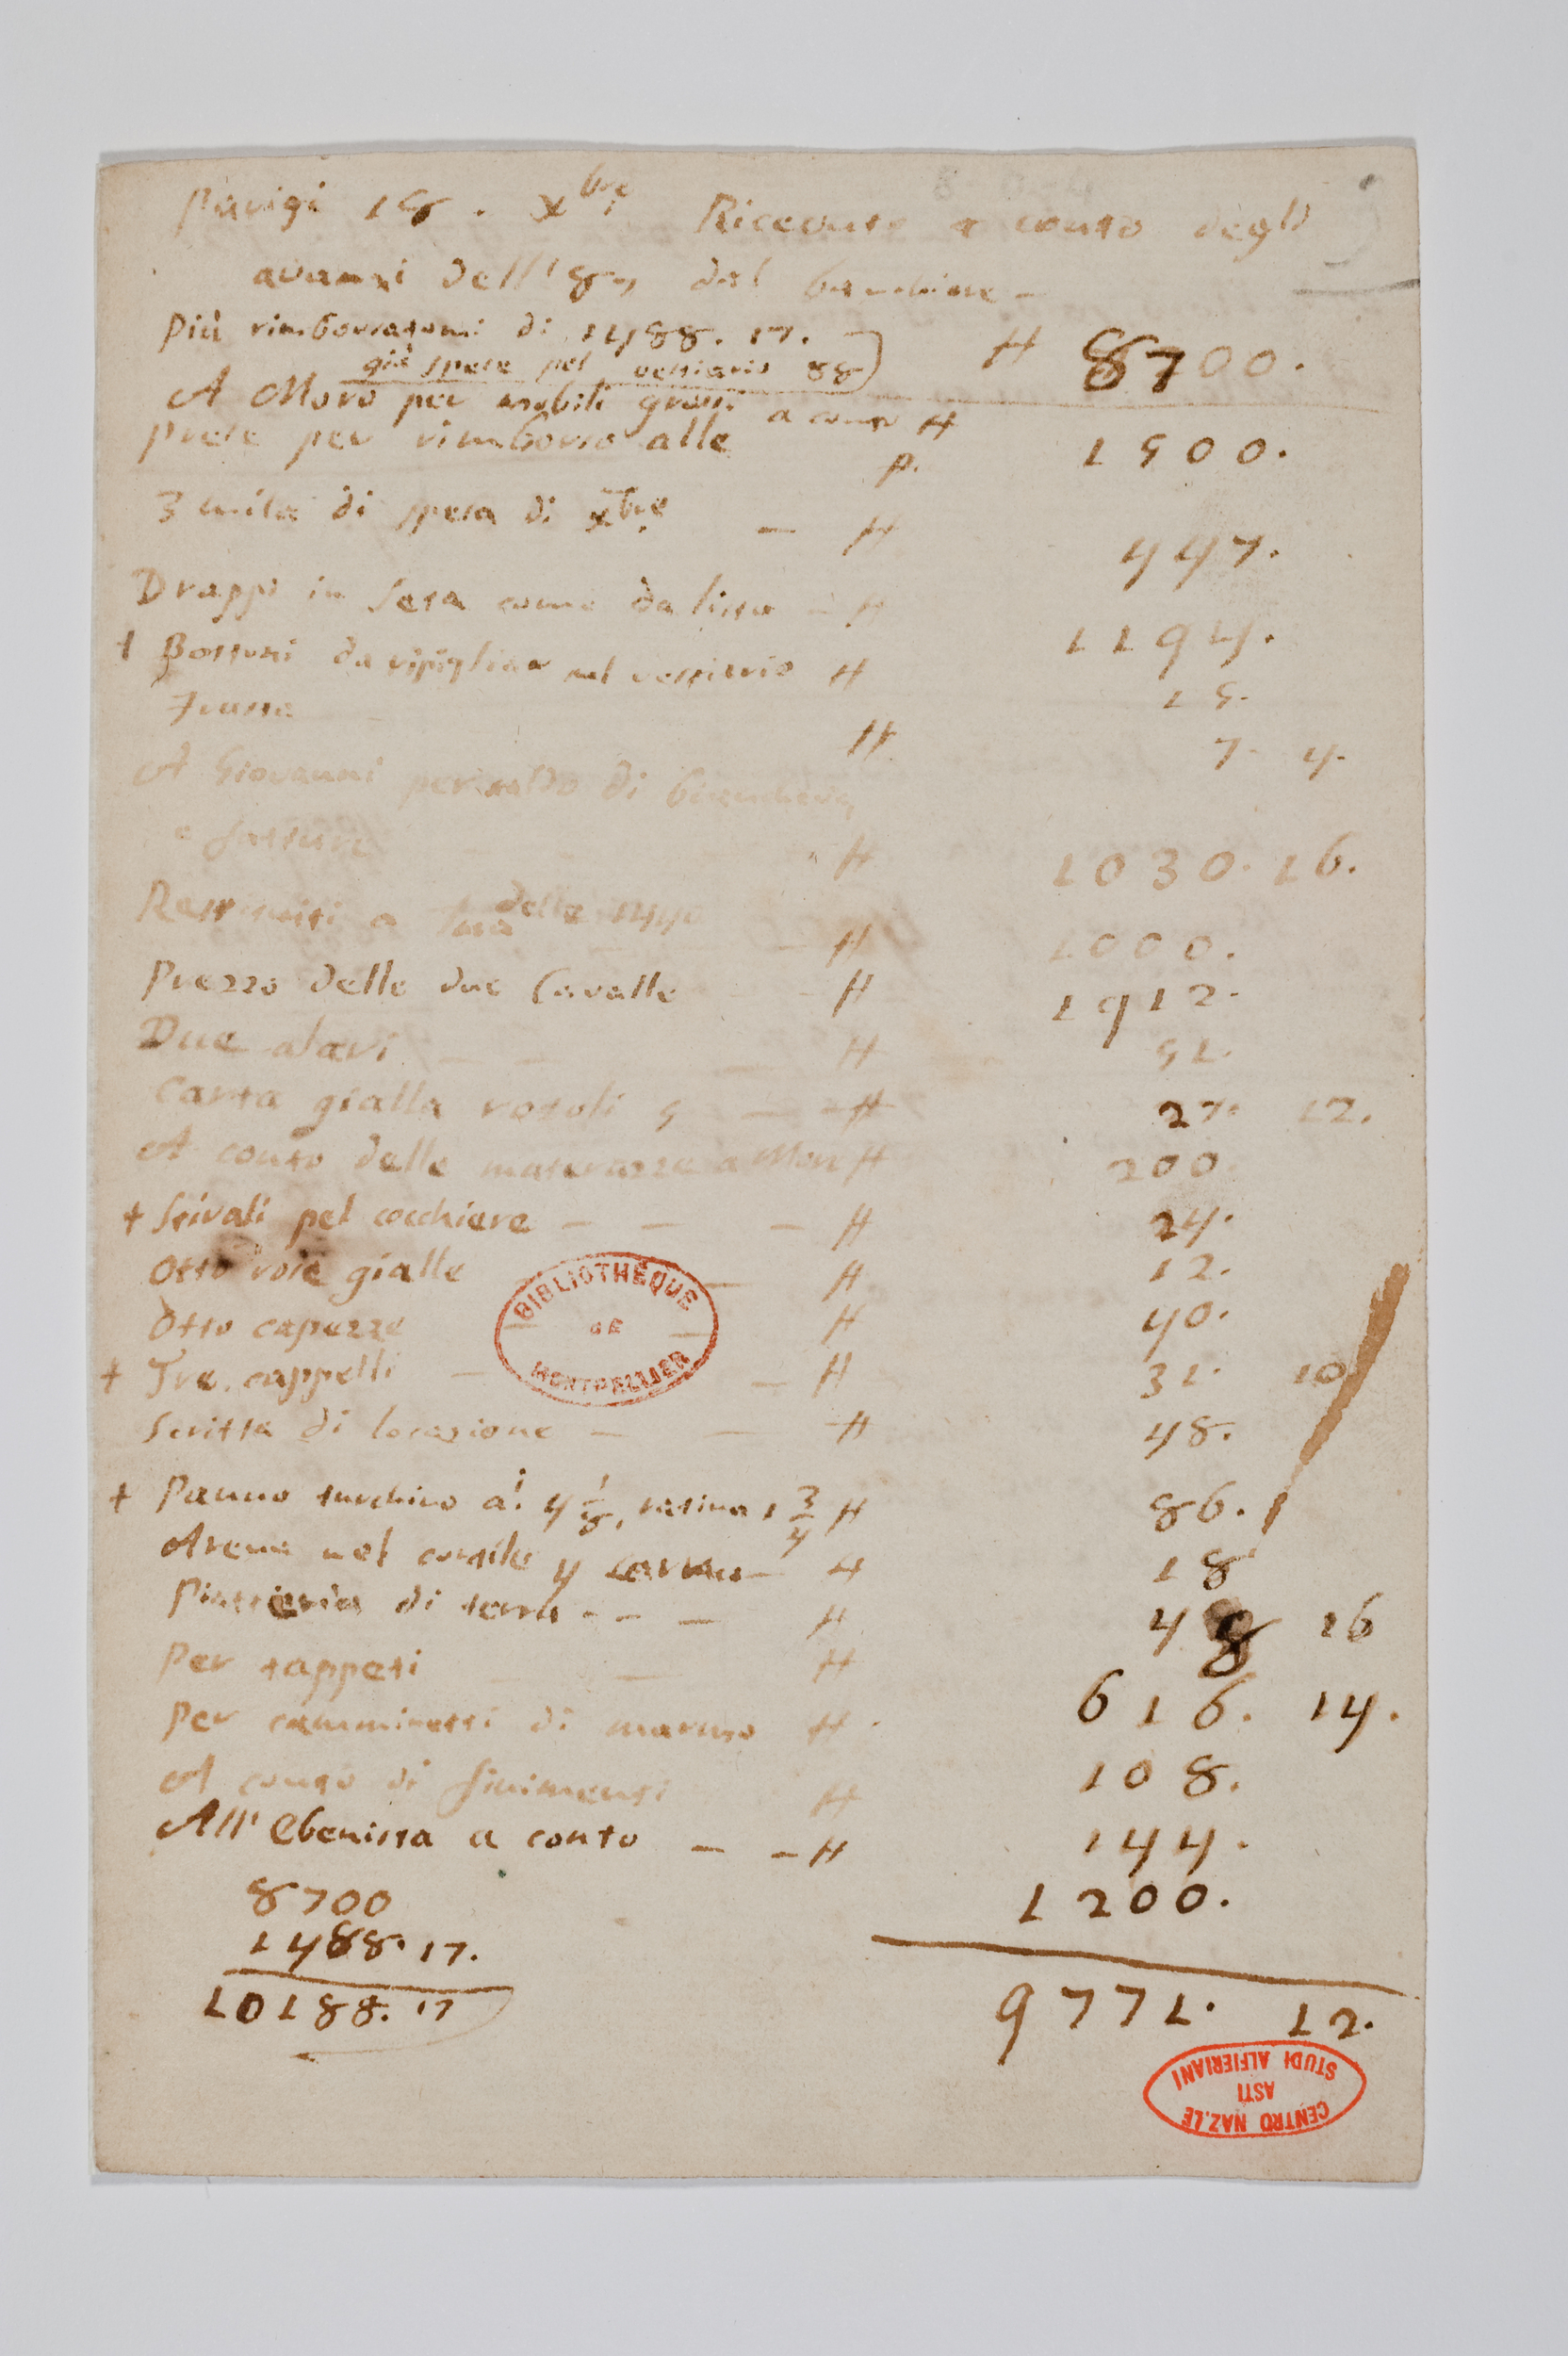 Parigi 18. Xbre. Ricevute a conto degli
avanzi dell'87, dal banchiere -
più rimborsatomi di 1488. 17.
già spese pel vestiario 88) H 8700.
A Moro per mobili grossi a conto H 1500.
prese per rimborso alle p.
3 mila di spesa di Xbre — H 447.
Drappi in seta come da lista - H 1194.
+ Bottoni da ripigliar nel vestiario H 15.
H 7. 4.
A Giovanni per saldo di biancheria
e fatture H 1030. 16.
Restituiti a delle 1440 - H 1000.
Prezzo delle due Cavalle - H 1912.
Due alari — — — H 51.
Carta gialla rotoli 5 — — H 27. 12.
A conto delle materazze a Moro H 200.
+ Stivali pel cocchiere — — — H 24.
Otto roie gialle — H 12.
Otto capezze — — H 40.
+ Tre cappelli — — H 31. 10
Scritta di locazione — — H 48.
+ Panno turchino a.i 4 1/8, ratina 1 3/4 H 86. 1
Arena nel cortile 4 H 18
Piatteria di terra - - — H 48 16
Per tappeti — H 616. 14.
Per camminetti di marmo H 108.
A conto di finimenti H 144.
All'Ebenista a conto — — H 1200.
8700
1488. 17.
10188. 17
9771. 12.
BIBLIOTHÈQUE
DE
MONTPELLIER
CENTRO NAZ.LE
ASTI
STUDI ALFIERIANI